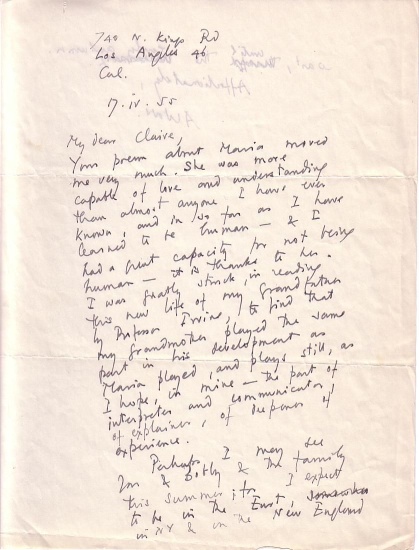 740 N. Kings Rd
Los Angeles 46
Cal.
17.iv.55
My dear Claire,
Your poem about Maria moved
me very much. She was more
capable of love and understanding
than almost anyone I have ever
known, and in so far as I have
learned to be human — & I
had a great capacity for not being
human — it is thanks to her.
I was greatly struck, in reading
this new life of my grandfather
by Professor Irvine, to find that
my grandmother played the same
part in his development as
Maria played, and plays still, as
I hope, in mine — the part of
interpreter and communicator,
of explainer, of deepener of
experience.
Perhaps I may see
you & & the family
this summer; for I expect
to be in the East,
in NY & in the New England
Affectionately,